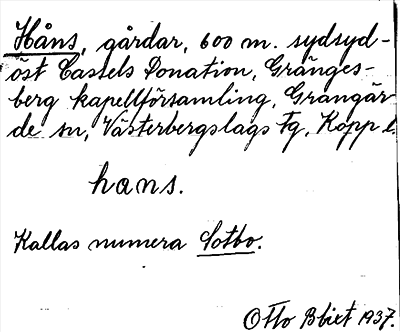 Håns, gårdar, 600 m. sydsyd-
öst Cassels Donation, Gränges-
berg kapellförsamling, Grangär-
de sn, Västerbergslags Fg, Kopp l.
hans.
Kallas numera Sotbo.
Otto Blixt 1937.